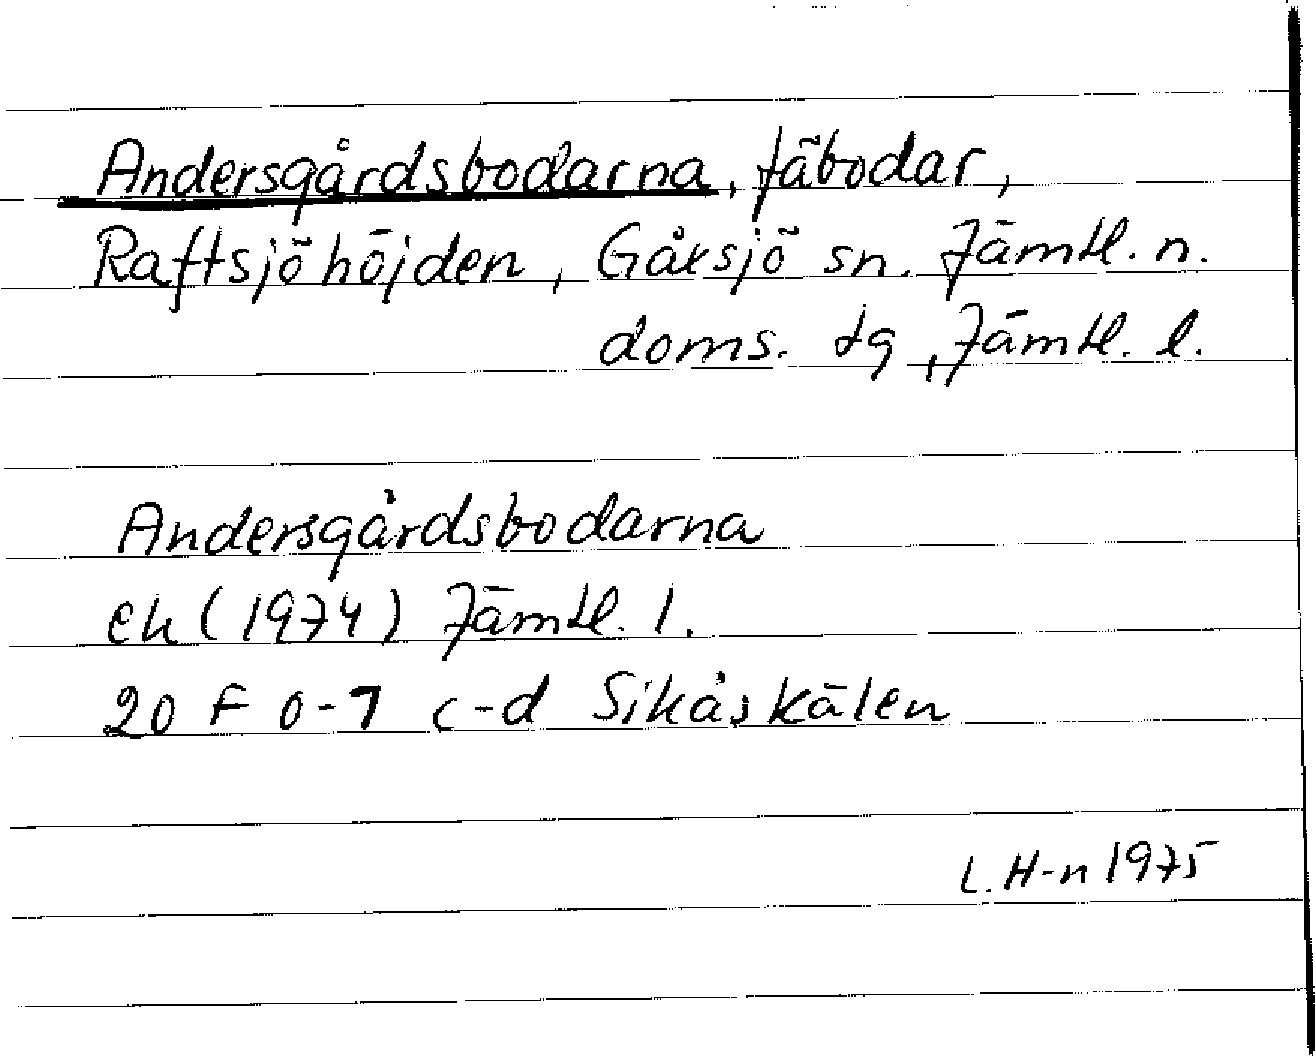 Andersgårdsbodarna, fäbodar,
Raftsjöhöjden, Gåxsjö sn. Jämtl. n.
doms. tg, Jämtl. l.
Andersgårdsbodarna
ek (1974) Jämtl. l.
20 F 0-1 c-d Sikåskälen
L. H-n 1975